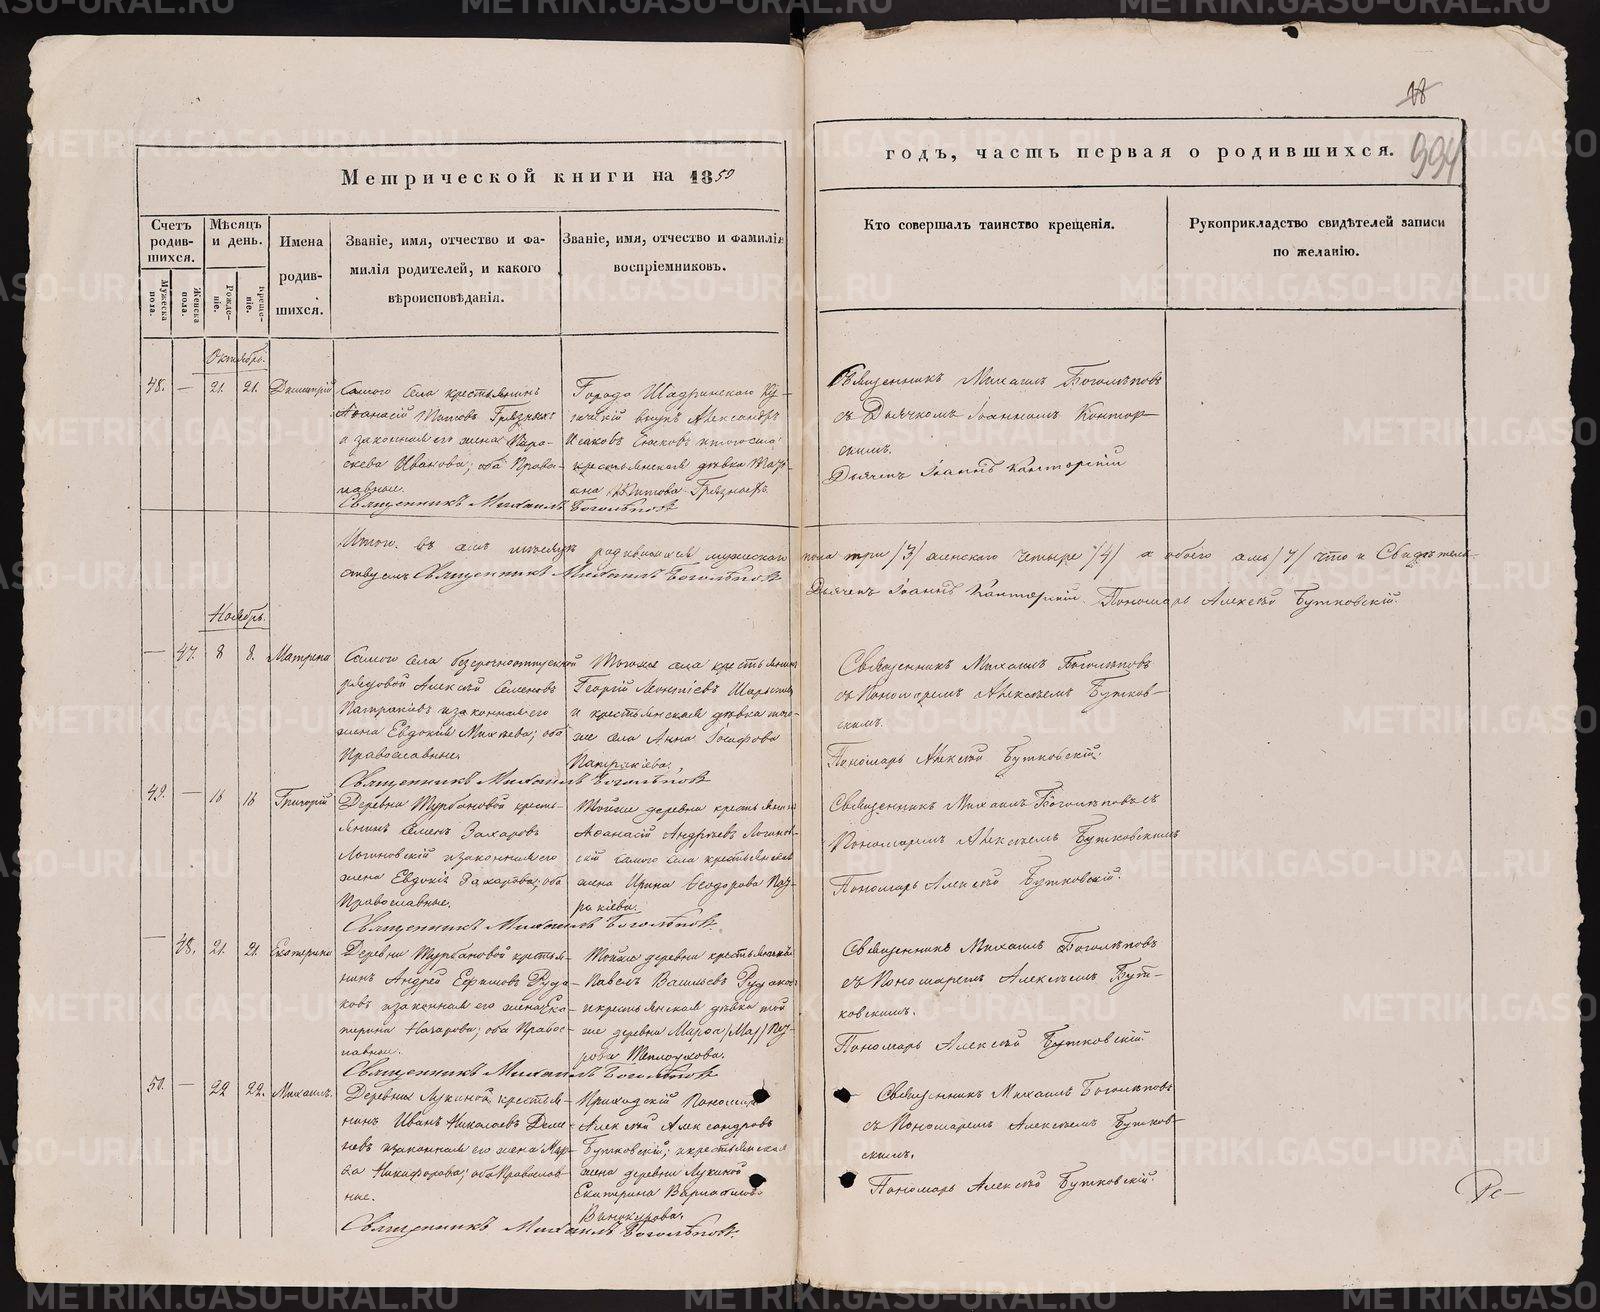 Метрической книги на 1859
годъ, часть первая о родившихся.
18
994
Счетъ родившихся.
Мужеска пола.
Женска пола.
Мѣсяцъ и день.
Рожденіе.
Крещеніе.
Имена родившихся.
Званіе, имя, отчество и фамилія родителей, и какого вѣроисповѣданія.
Званіе, имя, отчество и фамилія воспріемниковъ.
Кто совершалъ таинство крещенія.
Рукоприкладство свидѣтелей записи по желанію.
Октябрь.
48. — 21. 21. Димитрій
Самого села крестьянинъ
Афанасій Титовъ Грязныхъ
и законная его жена Пара-
скева Иванова; оба Право-
славные.
Города Шадринскаго Ку-
печескій внукъ Александръ
Исаковъ и того села
крестьянская дѣвка Тать-
яна Титова Грязныхъ.
Священникъ Михаилъ Боголѣповъ
Священникъ Михаилъ Боголѣповъ
съ Дьячкомъ Іоанномъ Контор-
скимъ.
Дьячекъ Іоаннъ Конторскій
Итого въ мѣсяцѣ родившихся мужескаго пола три /3/ женскаго четыре /4/ а обоего семь /7/ что и Свидѣтель-
ствуемъ Священникъ Михаилъ Боголѣповъ
Дьячекъ Іоаннъ Конторскій. Пономарь Алексѣй Бутковскій.
Ноябрь.
— 47. 8 8. Матрина
Самого села безсрочноотпускной
рядовой Алексѣй Семеновъ
Патракѣевъ и законная его
жена Евдокія Михѣева; оба
Православные.
Того же села крестьянинъ
Георгій Леонтіевъ
и крестьянская дѣвка того
же села Анна Іосифова
Патракѣева.
Священникъ Михаилъ Боголѣповъ
Священникъ Михаилъ Боголѣповъ
съ Пономаремъ Алексѣемъ Бутков-
скимъ.
Пономарь Алексѣй Бутковскій.
49. — 16 16 Григорій
Деревни Турбановой кресть-
янинъ Семенъ Захаровъ
Логиновскій и законная его
жена Евдокія Захарова; оба
Православные.
Тойже деревни крестьянинъ
Афанасій Андреевъ Логинов-
скій самого села крестьянская
жена Ирина Ѳеодорова Пат-
ракіева.
Священникъ Михаилъ Боголѣповъ
Священникъ Михаилъ Боголѣповъ съ
Пономаремъ Алексѣемъ Бутковскимъ
Пономарь Алексѣй Бутковскій.
— 48. 21. 21. Екатерина
Деревни Турбановой крестья-
нинъ Андрей Ефимовъ Руда-
ковъ и законная его жена Ека-
терина Назарова; оба Правос-
лавные.
Тойже деревни крестьянинъ
Павелъ Васильевъ Рудаковъ
и крестьянская дѣвка той
же деревни Марѳа
Теплоухова.
Священникъ Михаилъ Боголѣповъ
Священникъ Михаилъ Боголѣповъ
съ Пономаремъ Алексѣемъ Бут-
ковскимъ.
Пономарь Алексѣй Бутковскій.
50. — 22 22. Михаилъ.
Деревни Лукиной крестья-
нинъ Иванъ Николаевъ
и законная его жена Мар-
ѳа Никифорова; оба Православ-
ные.
Приходскій Пономарь
Алексѣй Александровъ
Бутковскій; и крестьянская
жена деревни Лукиной
Екатерина Варлаамова
Винокурова.
Священникъ Михаилъ Боголѣповъ.
Священникъ Михаилъ Боголѣповъ
съ Пономаремъ Алексѣемъ Бутков-
скимъ.
Пономарь Алексѣй Бутковскій.
METRIKI.GASO-URAL.RU